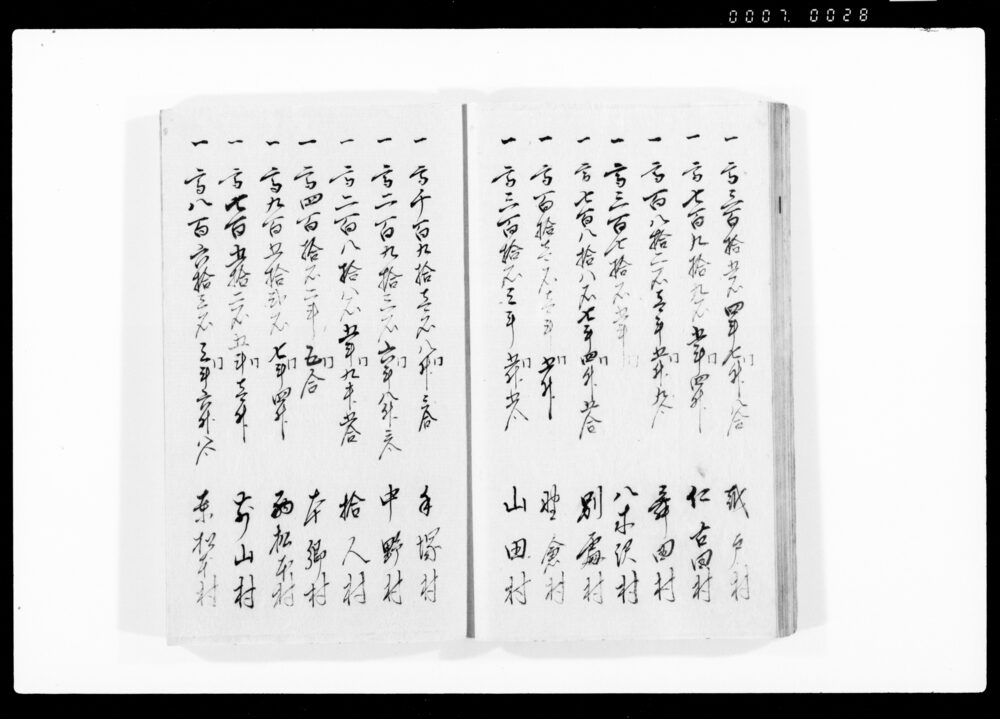 0007. 0028
一 高三百拾五石四斗七升八合 越戸村
一 高七百九拾九石五斗四升 仁古田村
一 高百八拾二石壱斗五升九合 舞田村
一 高三百七拾石五斗 八木沢村
一 高七百八拾八石七斗四升五合 別處村
一 高百拾壱石壱斗五升 野倉村
一 高三百拾石三斗五升五合 山田村
一 高千百九拾壱石八升三合 手塚村
一 高二百九拾三石六斗八升三合 中野村
一 高二百八拾八石五斗九升五合 拾人村
一 高四百拾石二斗五合 本郷村
一 高九百五拾弐石七斗四升 西松本村
一 高七百五拾二石五斗壱升 前山村
一 高八百六拾三石三斗六升八合 東松本村